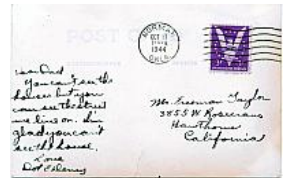 POST
NORMAN
OCT 11
1944
OKLA.
Dear Dad
You can't see the
houses but you
can see the street
we live on. I'm
glad you can't
see the house.
Love
Dot & Delaney
Mr. Freeman Taylor
3855 W Rosecrans
Hawthorne
California